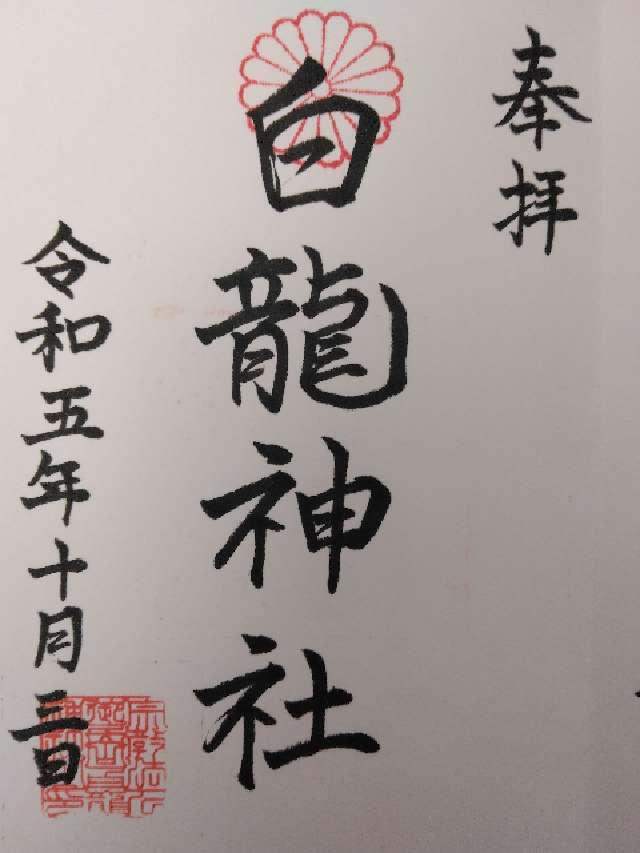 奉拝
白龍神社
令和五年十月三日